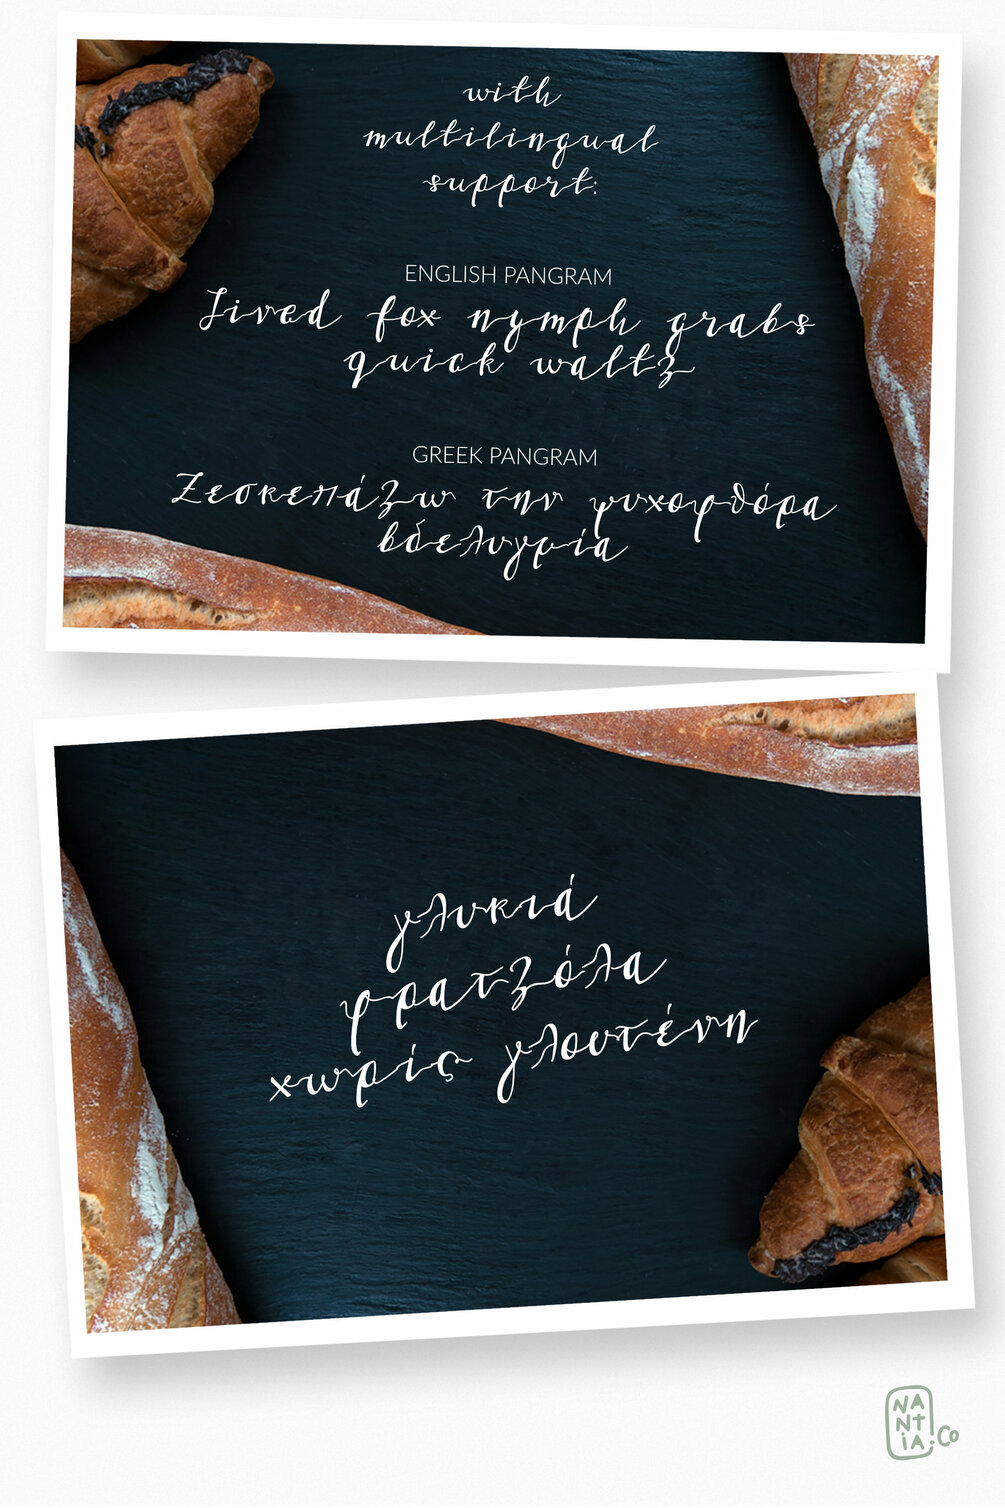 with
multilingual
support:
ENGLISH PANGRAM
Jived fox nymph grabs
quick waltz
GREEK PANGRAM
Ξεσκεπάζω την ψυχοφθόρα
βδελυγμία
γλυκιά
φρατζόλα
χωρίς γλουτένη
NA
NT
iA.Co